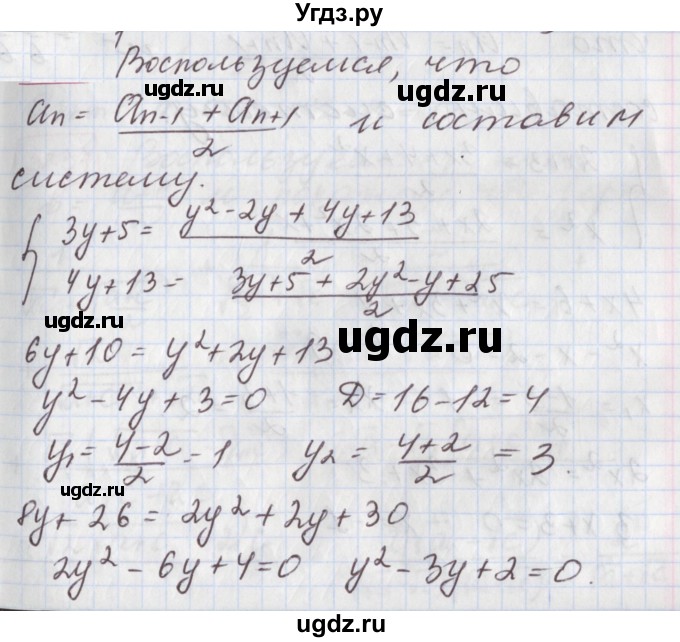 Угдз.ру
Воспользуемся, что
aₙ = (aₙ₋₁ + aₙ₊₁)/2 и составим
систему.
{ 3y+5 = (y² - 2y + 4y + 13)/2
4y+13 = (3y+5 + 2y² - y + 25)/2
ugdz.ru
ugdz.ru
ugdz.ru
ugdz.ru
6y+10 = y²+2y+13
ugdz.ru
y² - 4y + 3 = 0 D = 16-12 = 4
y₁ = (4-2)/2 = 1 y₂ = (4+2)/2 = 3.
ugdz.ru
8y + 26 = 2y² + 2y + 30
2y² - 6y + 4 = 0 y² - 3y + 2 = 0.
ugdz.ru
Угдз.ру